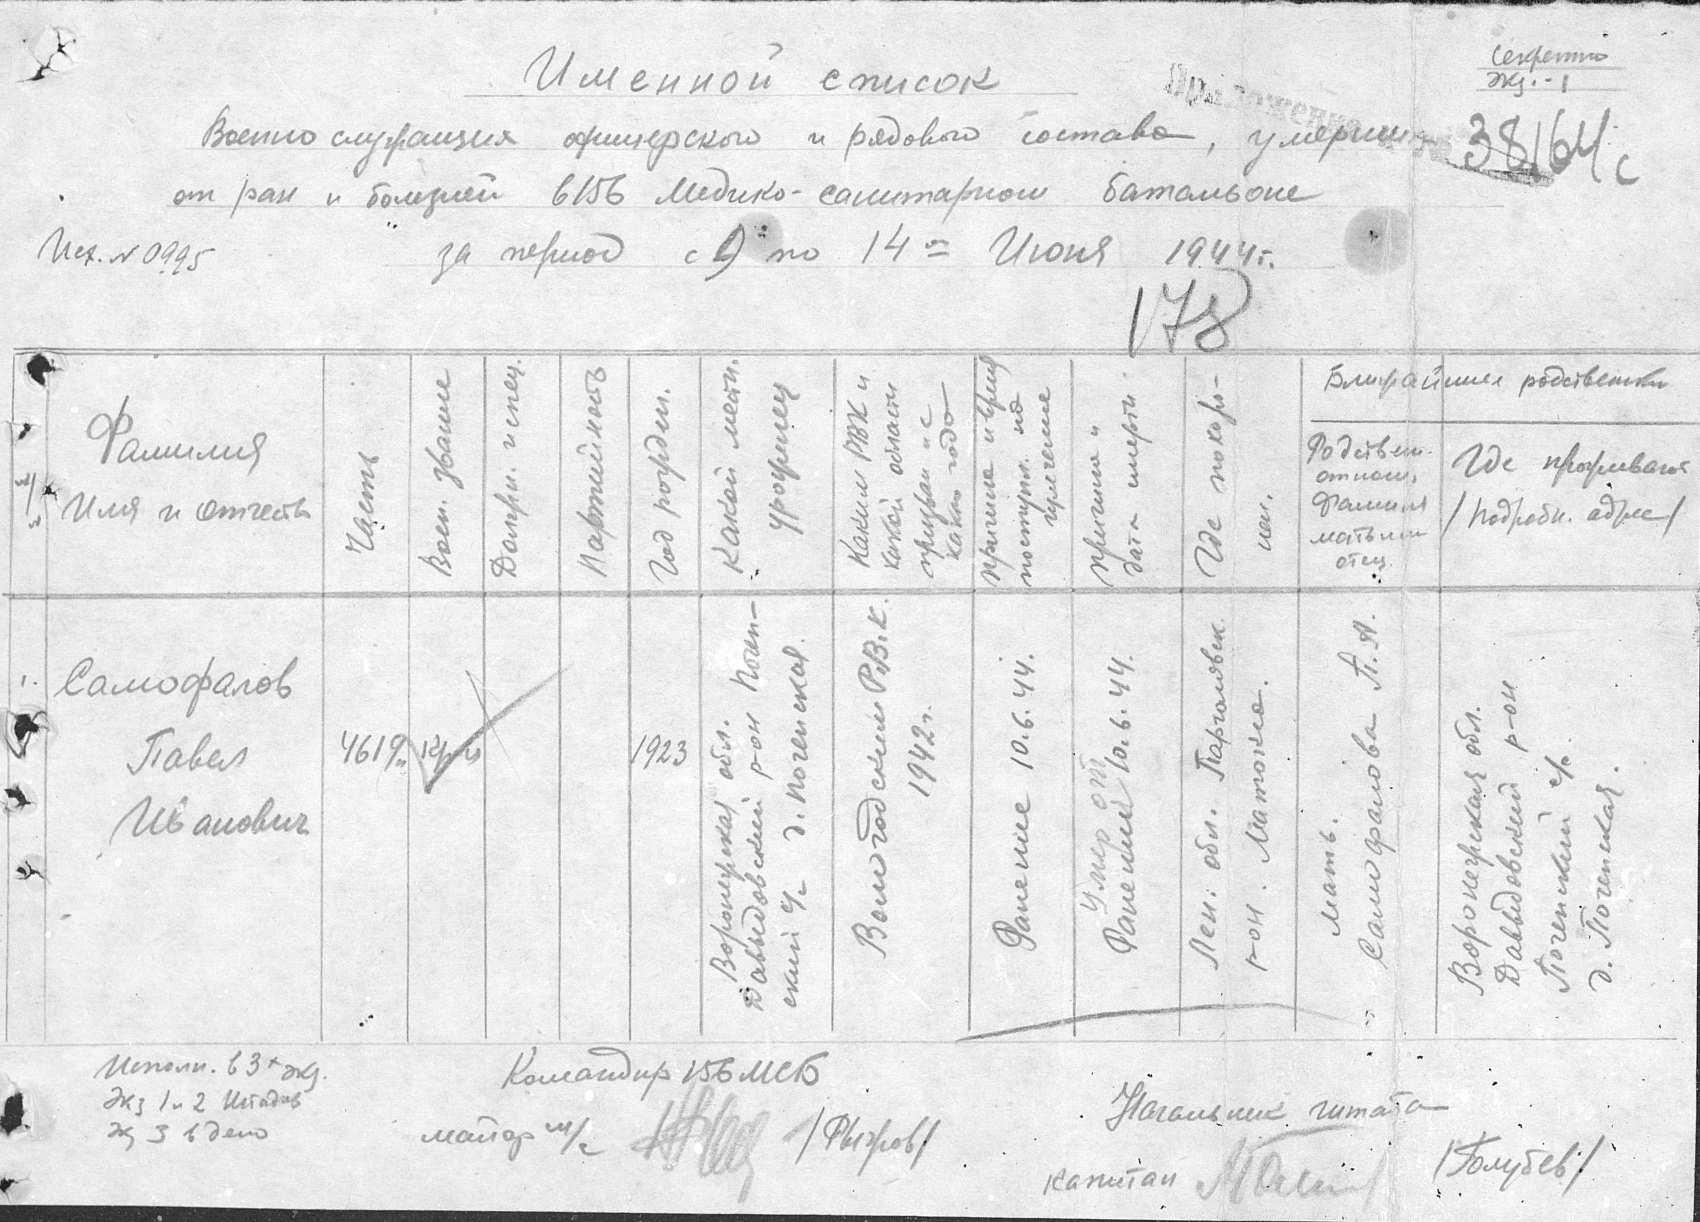 Секретно
Экз.-1
Именной список
38164с
Военнослужащих офицерского и рядового состава, умерших
от ран и болезней в 156 Медико-санитарном батальоне
Исх. № 0995
за период с 9 по 14 = Июня 1944 г.
178
Фамилия
Имя и отчеств
Часть
Воен. звание
Должн. и спец.
Партийность
Год рожден.
Какой местн.
уроженец
Каким РВК и
какой области
призван и с
какого года
причина и время
поступл. на
лечение
причина и
дата смерти
Где похоро-
нен.
Ближайшие родственики
Родствен.
отнош.
Фамилия
мать или
отец
Где проживают
/подробн. адрес/
1.
Самофалов
Павел
Иванович
4619
1923
Воронежская обл.
Давыдовский р-он Почеп-
ский с/с д. Почепская.
Вологодским Р.В.К.
1942 г.
Ранение 10.6.44.
Умер от
Ранений 10.6.44.
Лен. обл. Парголовск.
р-он. Матокса.
мать.
Самофалова П. А.
Воронежская обл.
Давыдовский р-он
Почепский с/с
д. Почепская.
Исполн. в 3х экз.
Экз 1 и 2 Штадив
Эк 3 в дело
Командир 156 МСБ
майор м/с
Начальник штаба
капитан
/Голубев/